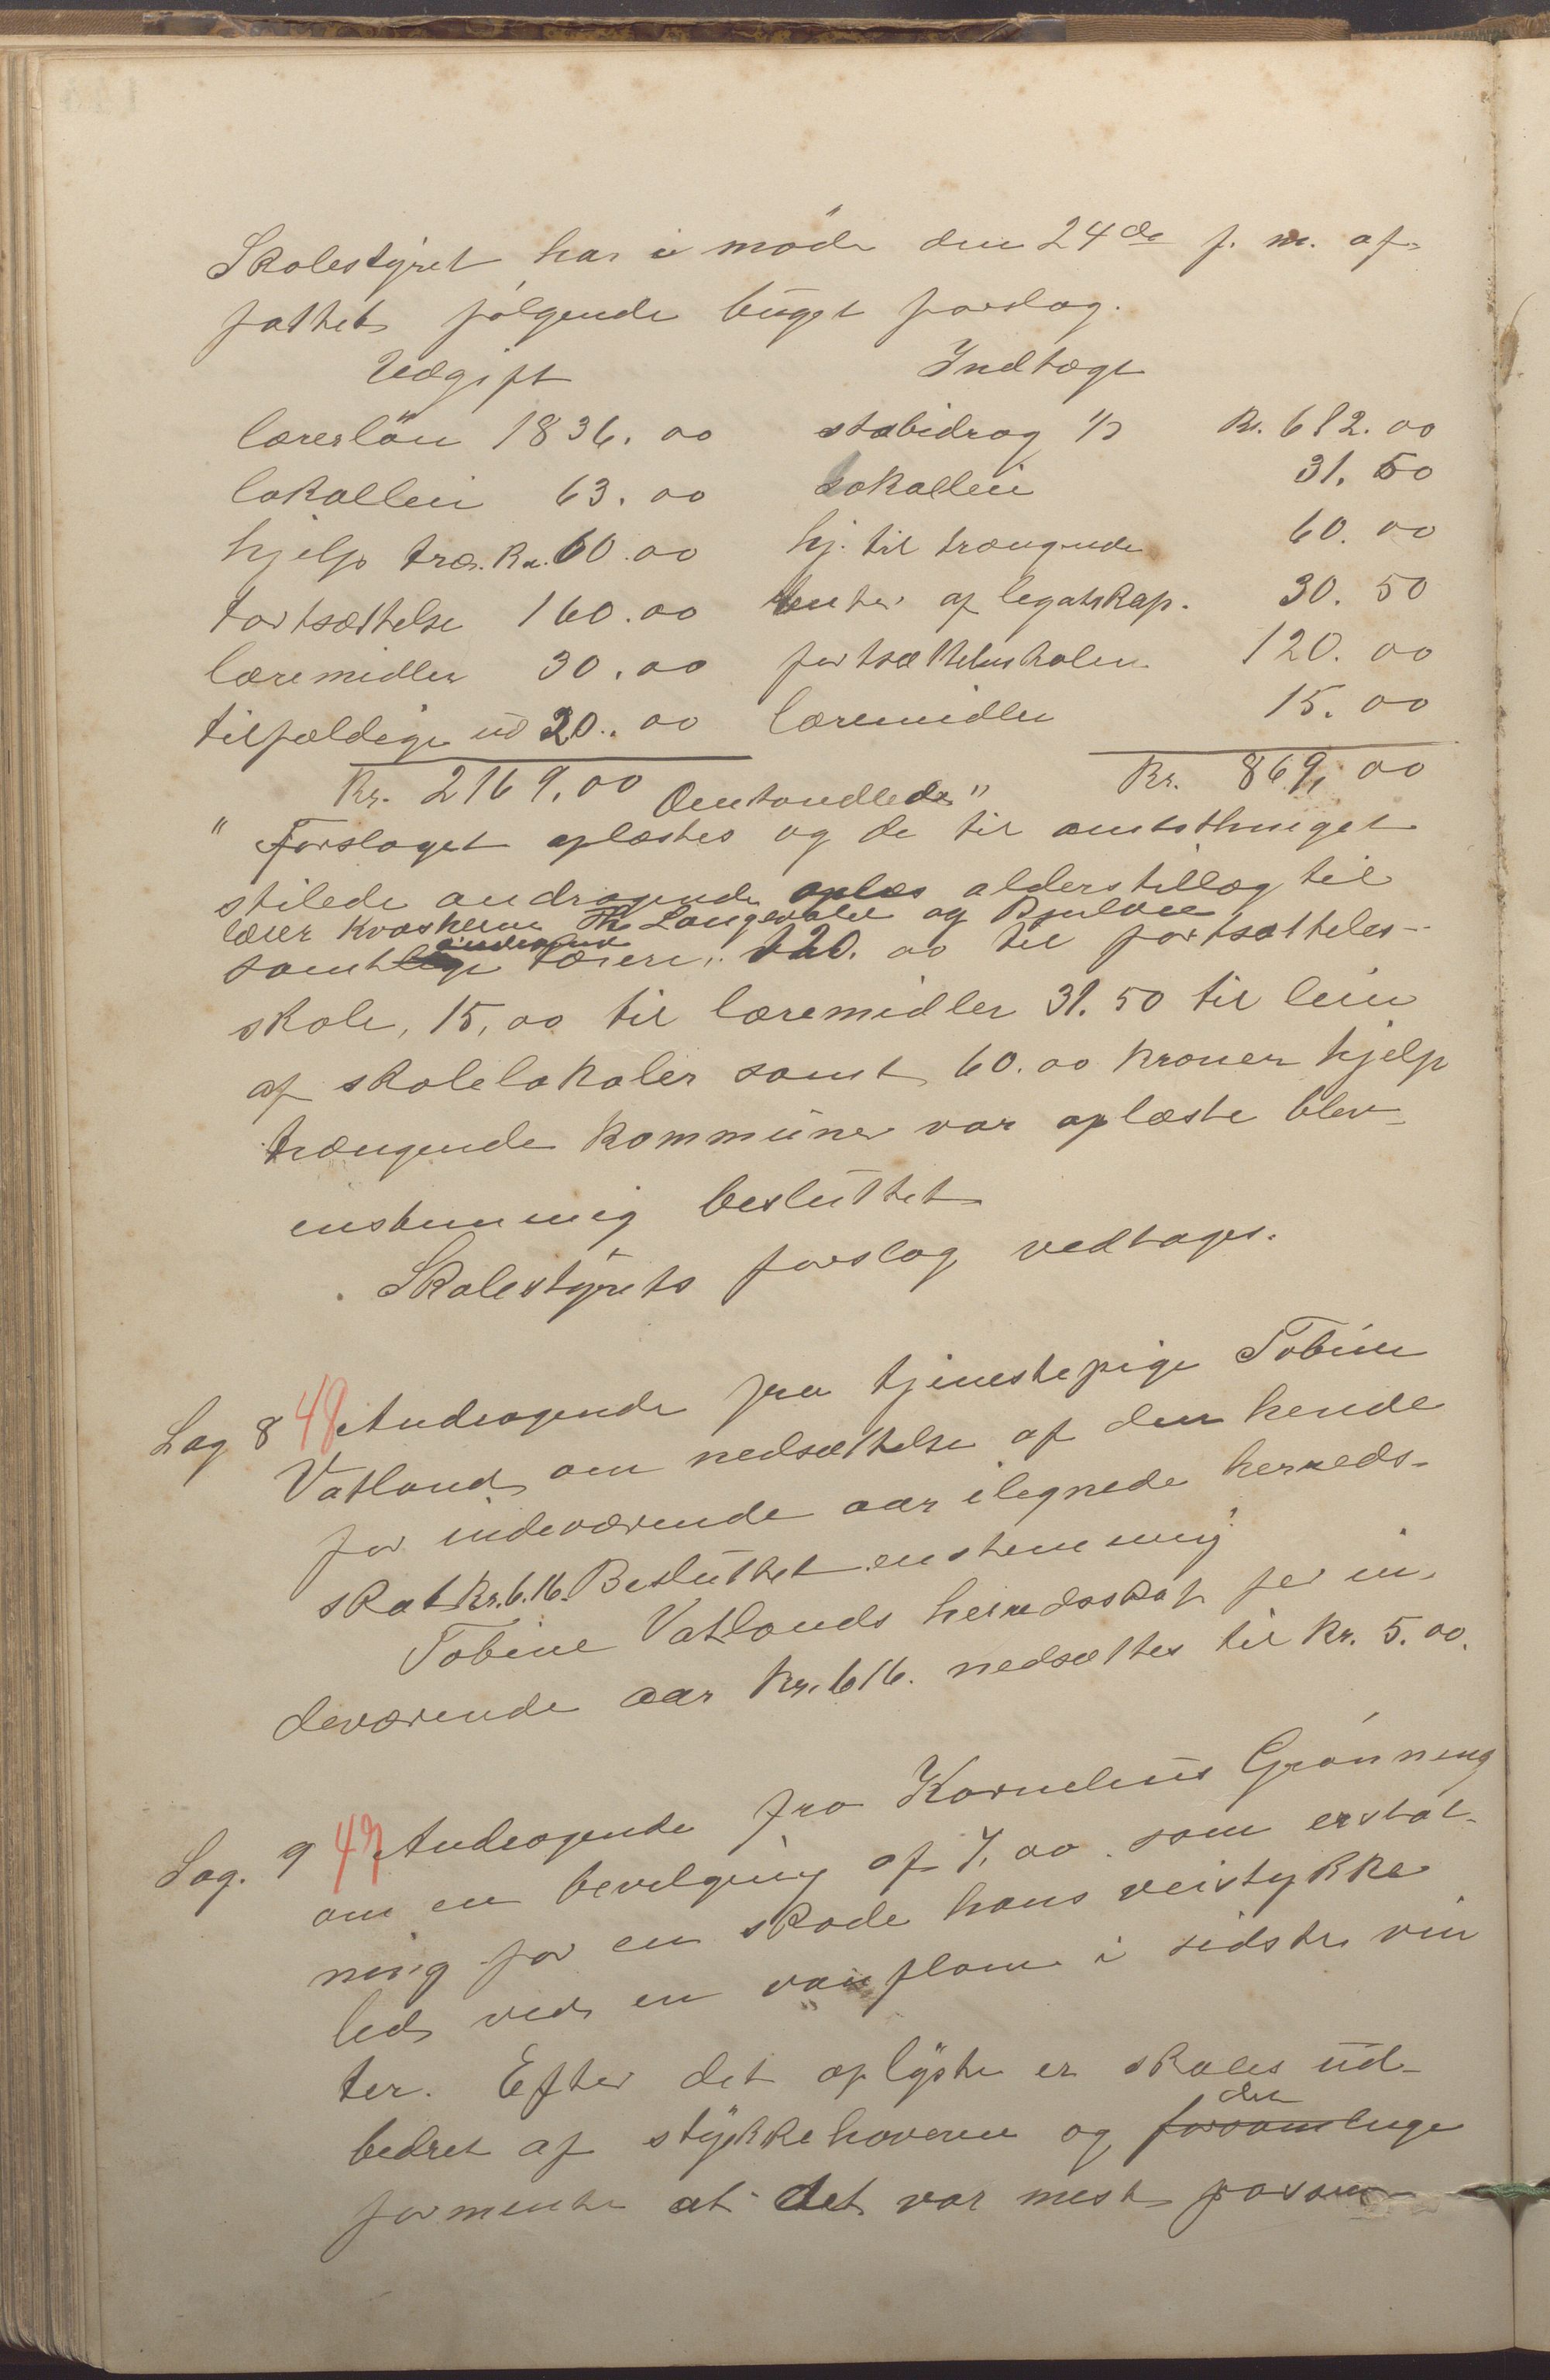 Skolestyret har i möde den 24de f. m. af-
fattet følgende buget forslag.
Udgift Indtægt
lærerlön 1836.00 stsbidrag 1/3 Kr. 612.00
lokalleie 63.00 Lokalleie 31.50
hjelp træ. Kr. 60.00 hj. til trængende 60.00
fortsættelse 160.00 renter af legatskap. 30.50
læremidler 30.00 fortsættelsesskolen 120.00
tilfældige ud 20.00 læremidler 15.00
Kr. 2169,00 Kr. 869,00
Omhandlede"
" Forslaget oplæstes og de til amtsthinget
stilede andragende alderstillæg til
lærer Kvasheim Th Langevatn og
samt andragende 120.00 til fortsættelses-
skole, 15,00 til læremidler 31.50 til leie
af skolelokaler samt 60.00 kroner hjelp
trængende kommuner var oplæste blev
enstemmig besluttet
Skolestyrets forslag vedtages.
Sag 8 48 Andragende fra tjenestepige Tobine
Vatland om nedsættelse af den hende
for indeværende aar ilignede herreds-
skat Kr. 6.16. Besluttet enstemmig
Tobine Vatlands herredsskat for in-
deværende aar Kr. 6.16. nedsættes til Kr. 5.00.
Sag. 9 49 Andragende fra Kornelius Grönning
om en bevilgning af 7,00 som erstat-
ning for en skade hans veistykke
led ved en vanflom i sidste vin
ter. Efter det oplyste er skades ud-
bedret af stykkehaveren og
det
formente at det var mest